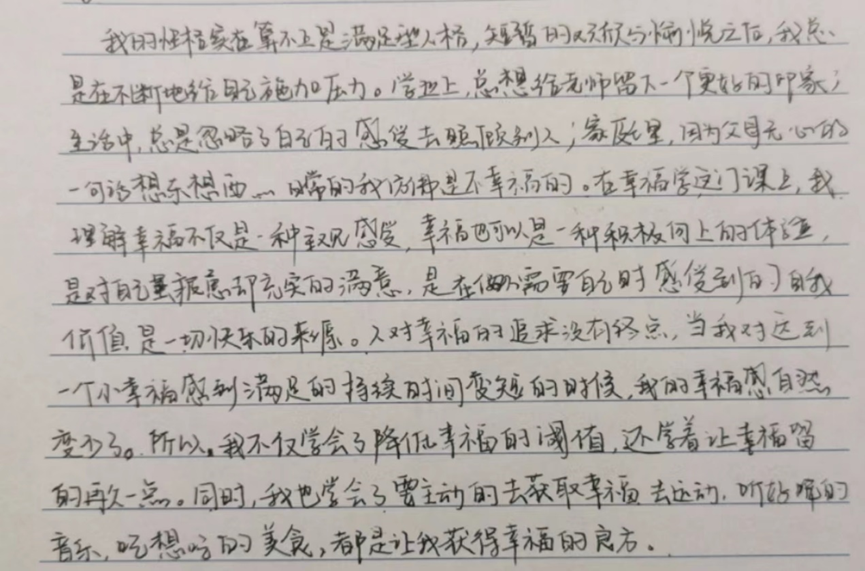 我的性格实在算不上是满足型人格，短暂的欢欣与愉悦之后，我总
是在不断地给自己施加压力。学业上，总想给老师留下一个更好的印象；
生活中，总是忽略了自己的感受去照顾别人；家庭里，因为父母无心的
一句话想东想西…… 日常的我仿佛都是不幸福的。在幸福学这门课上，我
理解幸福不仅是一种主观感受，幸福也可以是一种积极向上的体验，
是对自己疲惫却充实的满意，是在他人需要自己时感受到的自我
价值 是一切快乐的来源。人对幸福的追求没有终点，当我对达到
一个小幸福感到满足的持续时间变短的时候，我的幸福感自然
变少了。所以，我不仅学会了降低幸福的阈值，还学着让幸福留
的再久一点。同时，我也学会了要主动的去获取幸福 去运动，听好听的
音乐，吃想吃的美食，都是让我获得幸福的良方。